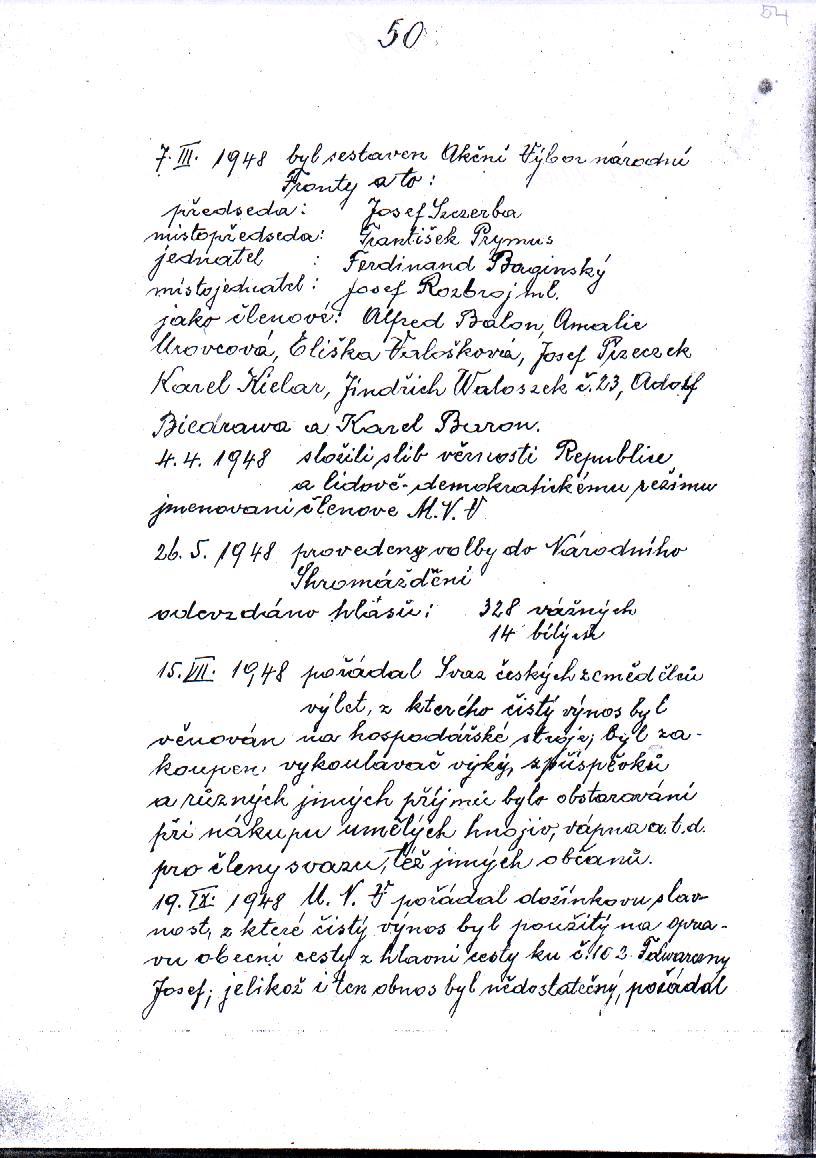 54
50
7. III. 1948 byl sestaven Akční Výbor národní
Fronty a to:
předseda: Josef Szczerba
místopředseda: František Prymus
jednatel : Ferdinand Baginský
místojednatel: Josef Rozbroj ml.
jako členové: Alfred Balon, Amalie
Urovcová, Eliška Valošková, Josef Pszeczek
Karel Kielar, Jindřich Waloszek č. 23, Adolf
Biedrawa a Karel Buron.
4. 4. 1948 složili slib věrnosti Republice
a lidově-demokratickému režimu
jmenovaní členove M. N. V
26. 5. 1948 provedeny volby do Národního
Shromáždění
odevzdáno hlasů: 328 vážných
14 bílých
15. VIII. 1948 pořádal Svaz českých zemědělců
výlet, z kterého čistý výnos byl
věnován na hospodářské stroje; byl za-
koupen vykoulavač výký, z příspěvků
a různých jiných příjmů bylo obstarování
při nákupu umělých hnojiv, vápna a.t.d.
pro členy svazu, též jiných občanů.
19. IX. 1948 M. N. V pořádal dožínkovu slav-
nost, z které čistý výnos byl použitý na opra-
vu obecní cesty z hlavní cesty ku č. 102
Josef; jelikož i ten obnos byl nědostatečný, pořádal